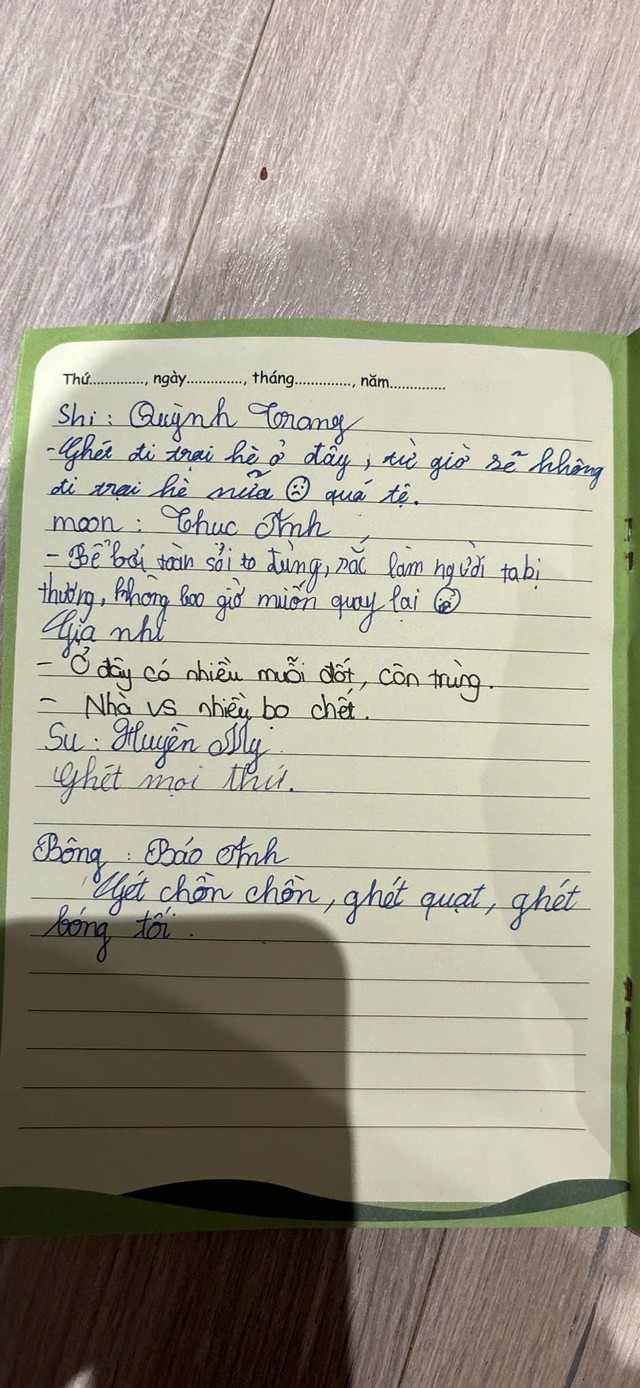 Thứ.............., ngày.............., tháng.............., năm..............
Shi : Quỳnh Trang
- Ghét đi trại hè ở đây, từ giờ sẽ không
đi trại hè nữa ☹ quá tệ.
moon : Thuc Anh
- Bể bơi toàn sỏi to đùng, sắc làm người ta bị
thương, không bao giờ muốn quay lại
Gia nhi
- Ở đây có nhiều muỗi đốt, côn trùng.
- Nhà vs nhiều bo chết.
Su : Huyền My
Ghét mọi thứ.
Bông : Bảo Anh
Ghét chồn chồn, ghét quạt, ghét
bóng tối.